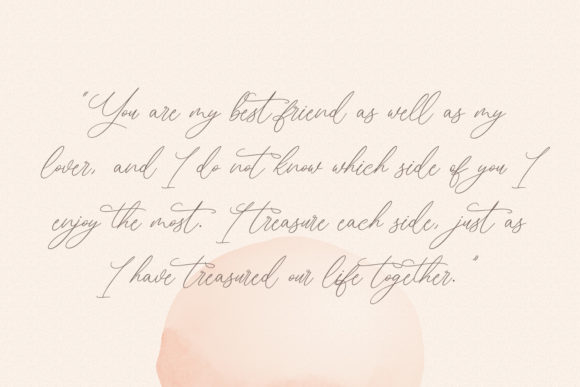 "You are my best friend as well as my
lover, and I do not know which side of you I
enjoy the most. I treasure each side, just as
I have treasured our life together."